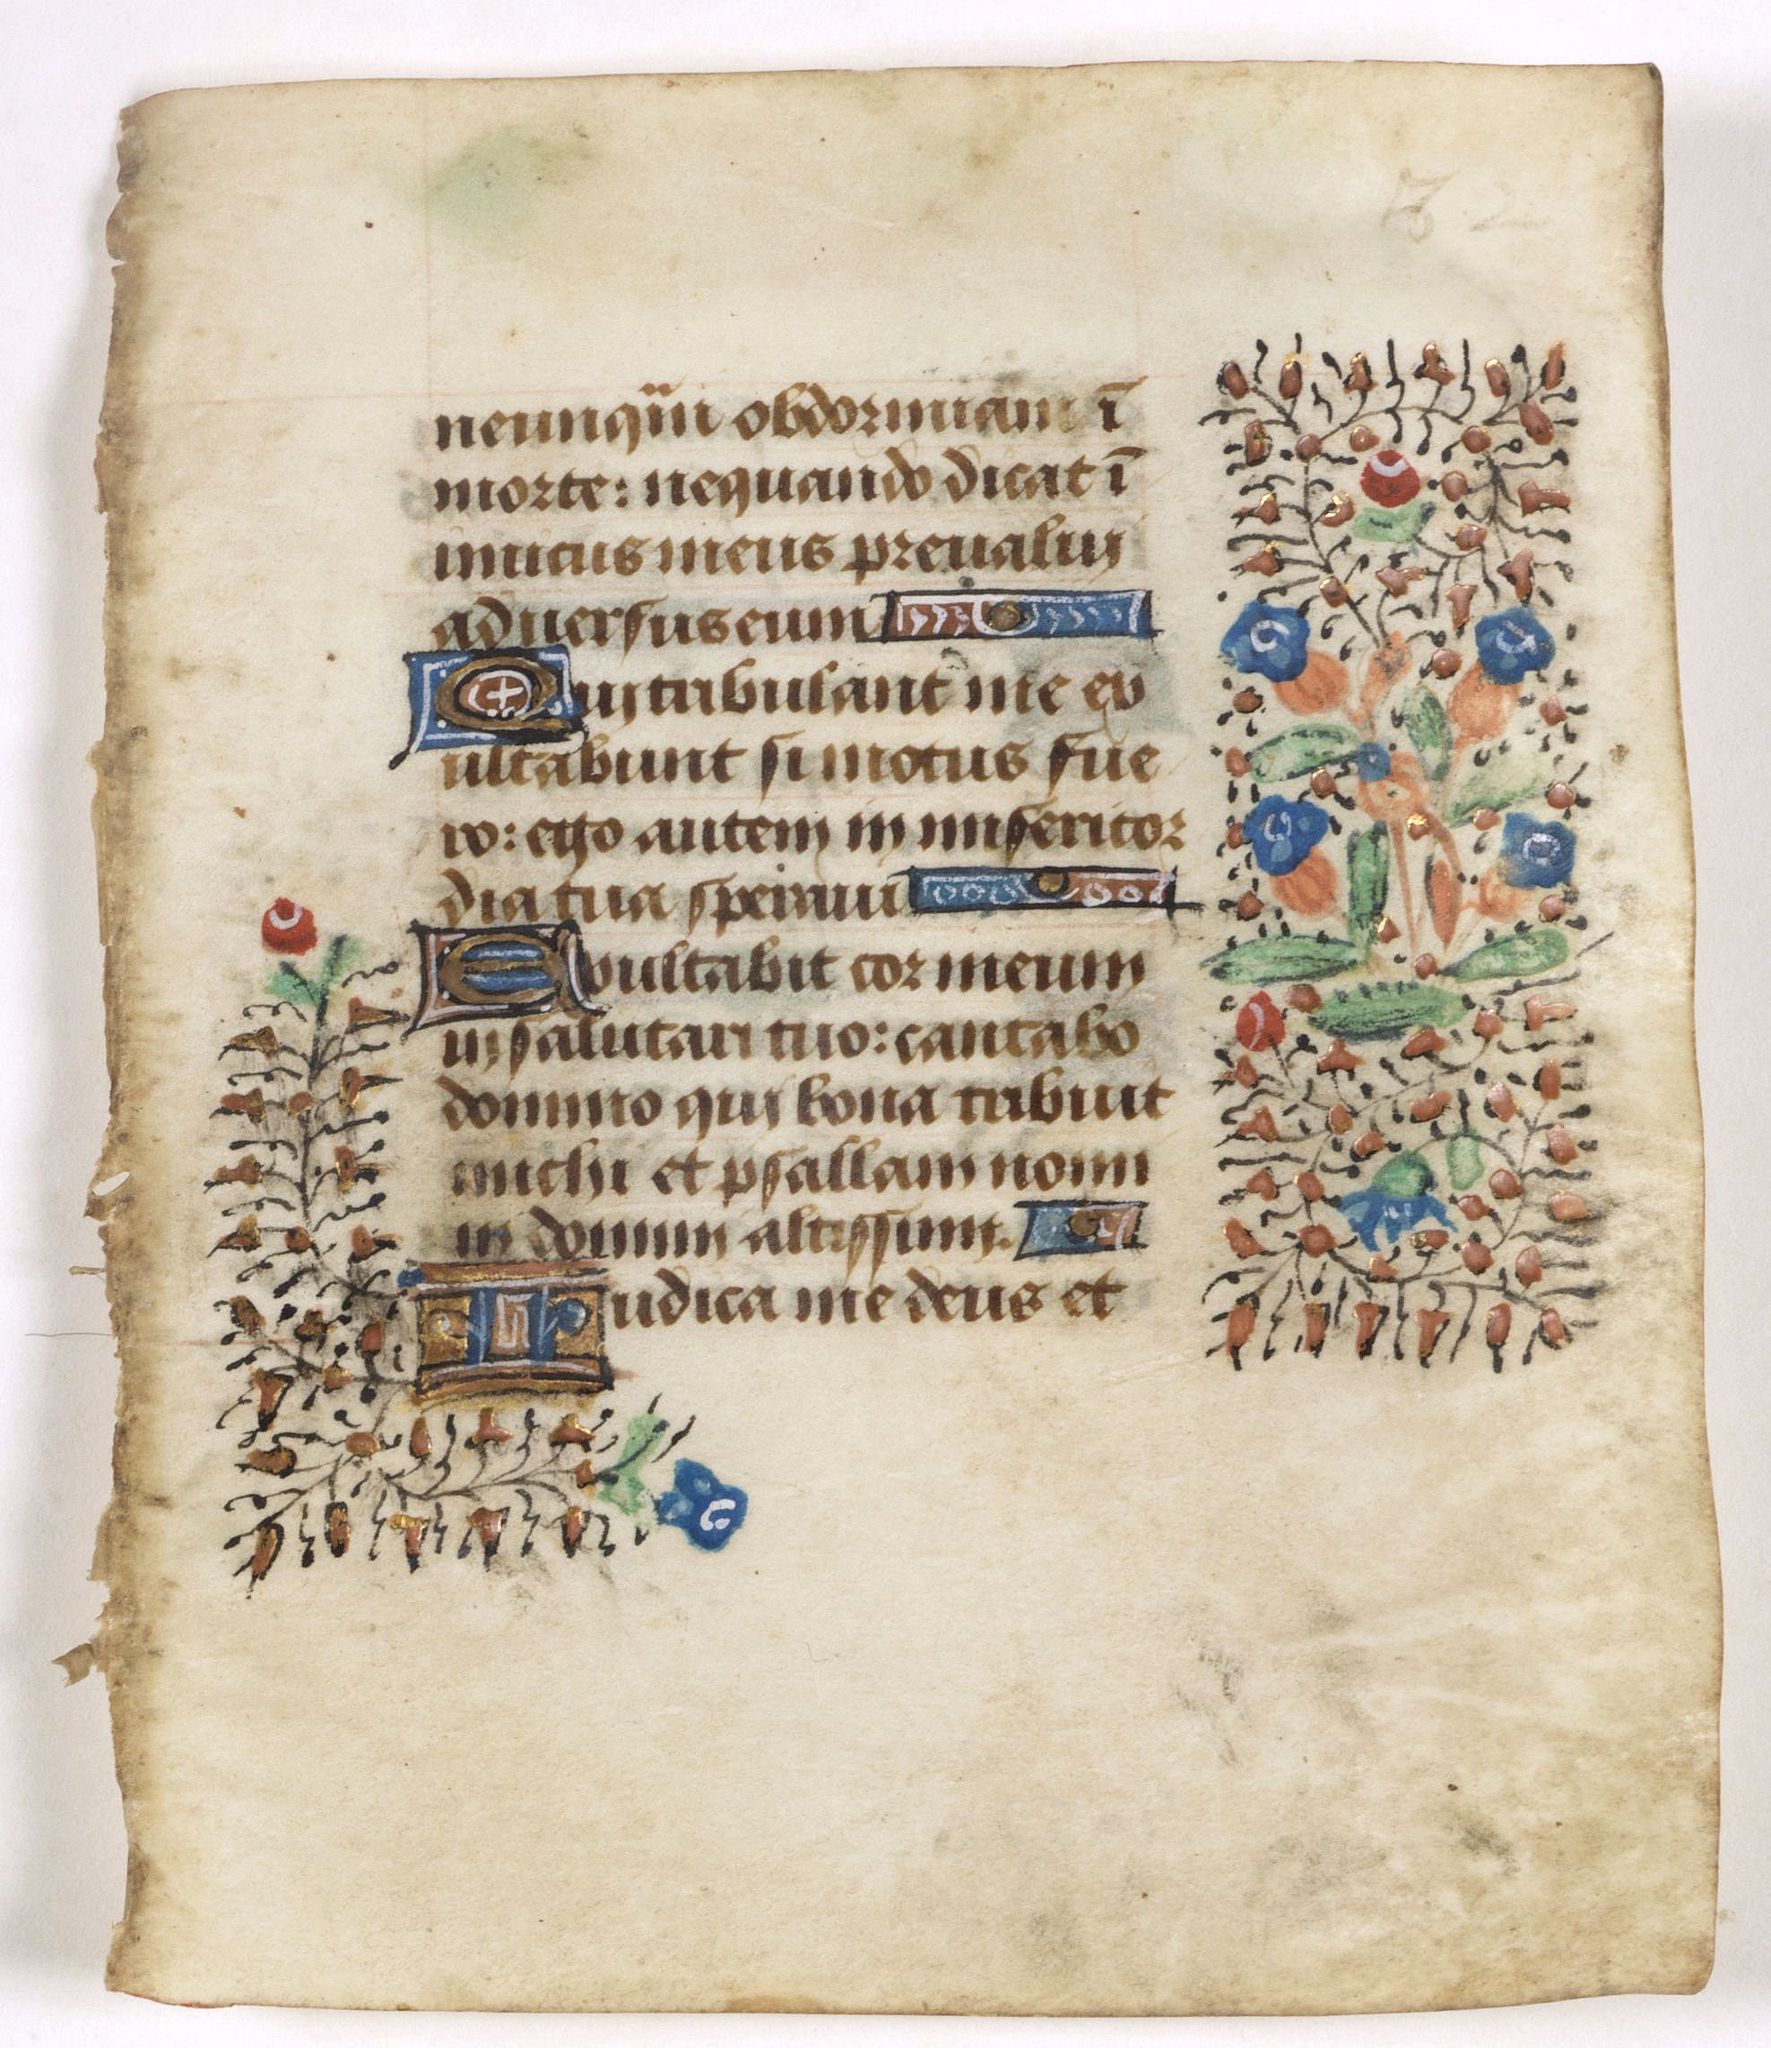 neunq̄m obdormiam ī
morte: nequando dicat ī
imicus meus preualui
aduersus eum
Qui tribulant me ex
ultabunt si motus fue
ro: ego autem in misericor
dia tua speraui
Exultabit cor meum
in salutari tuo: cantabo
domino qui bona tribuit
michi et psallam nomi
ni domini altissimi.
Iudica me deus et